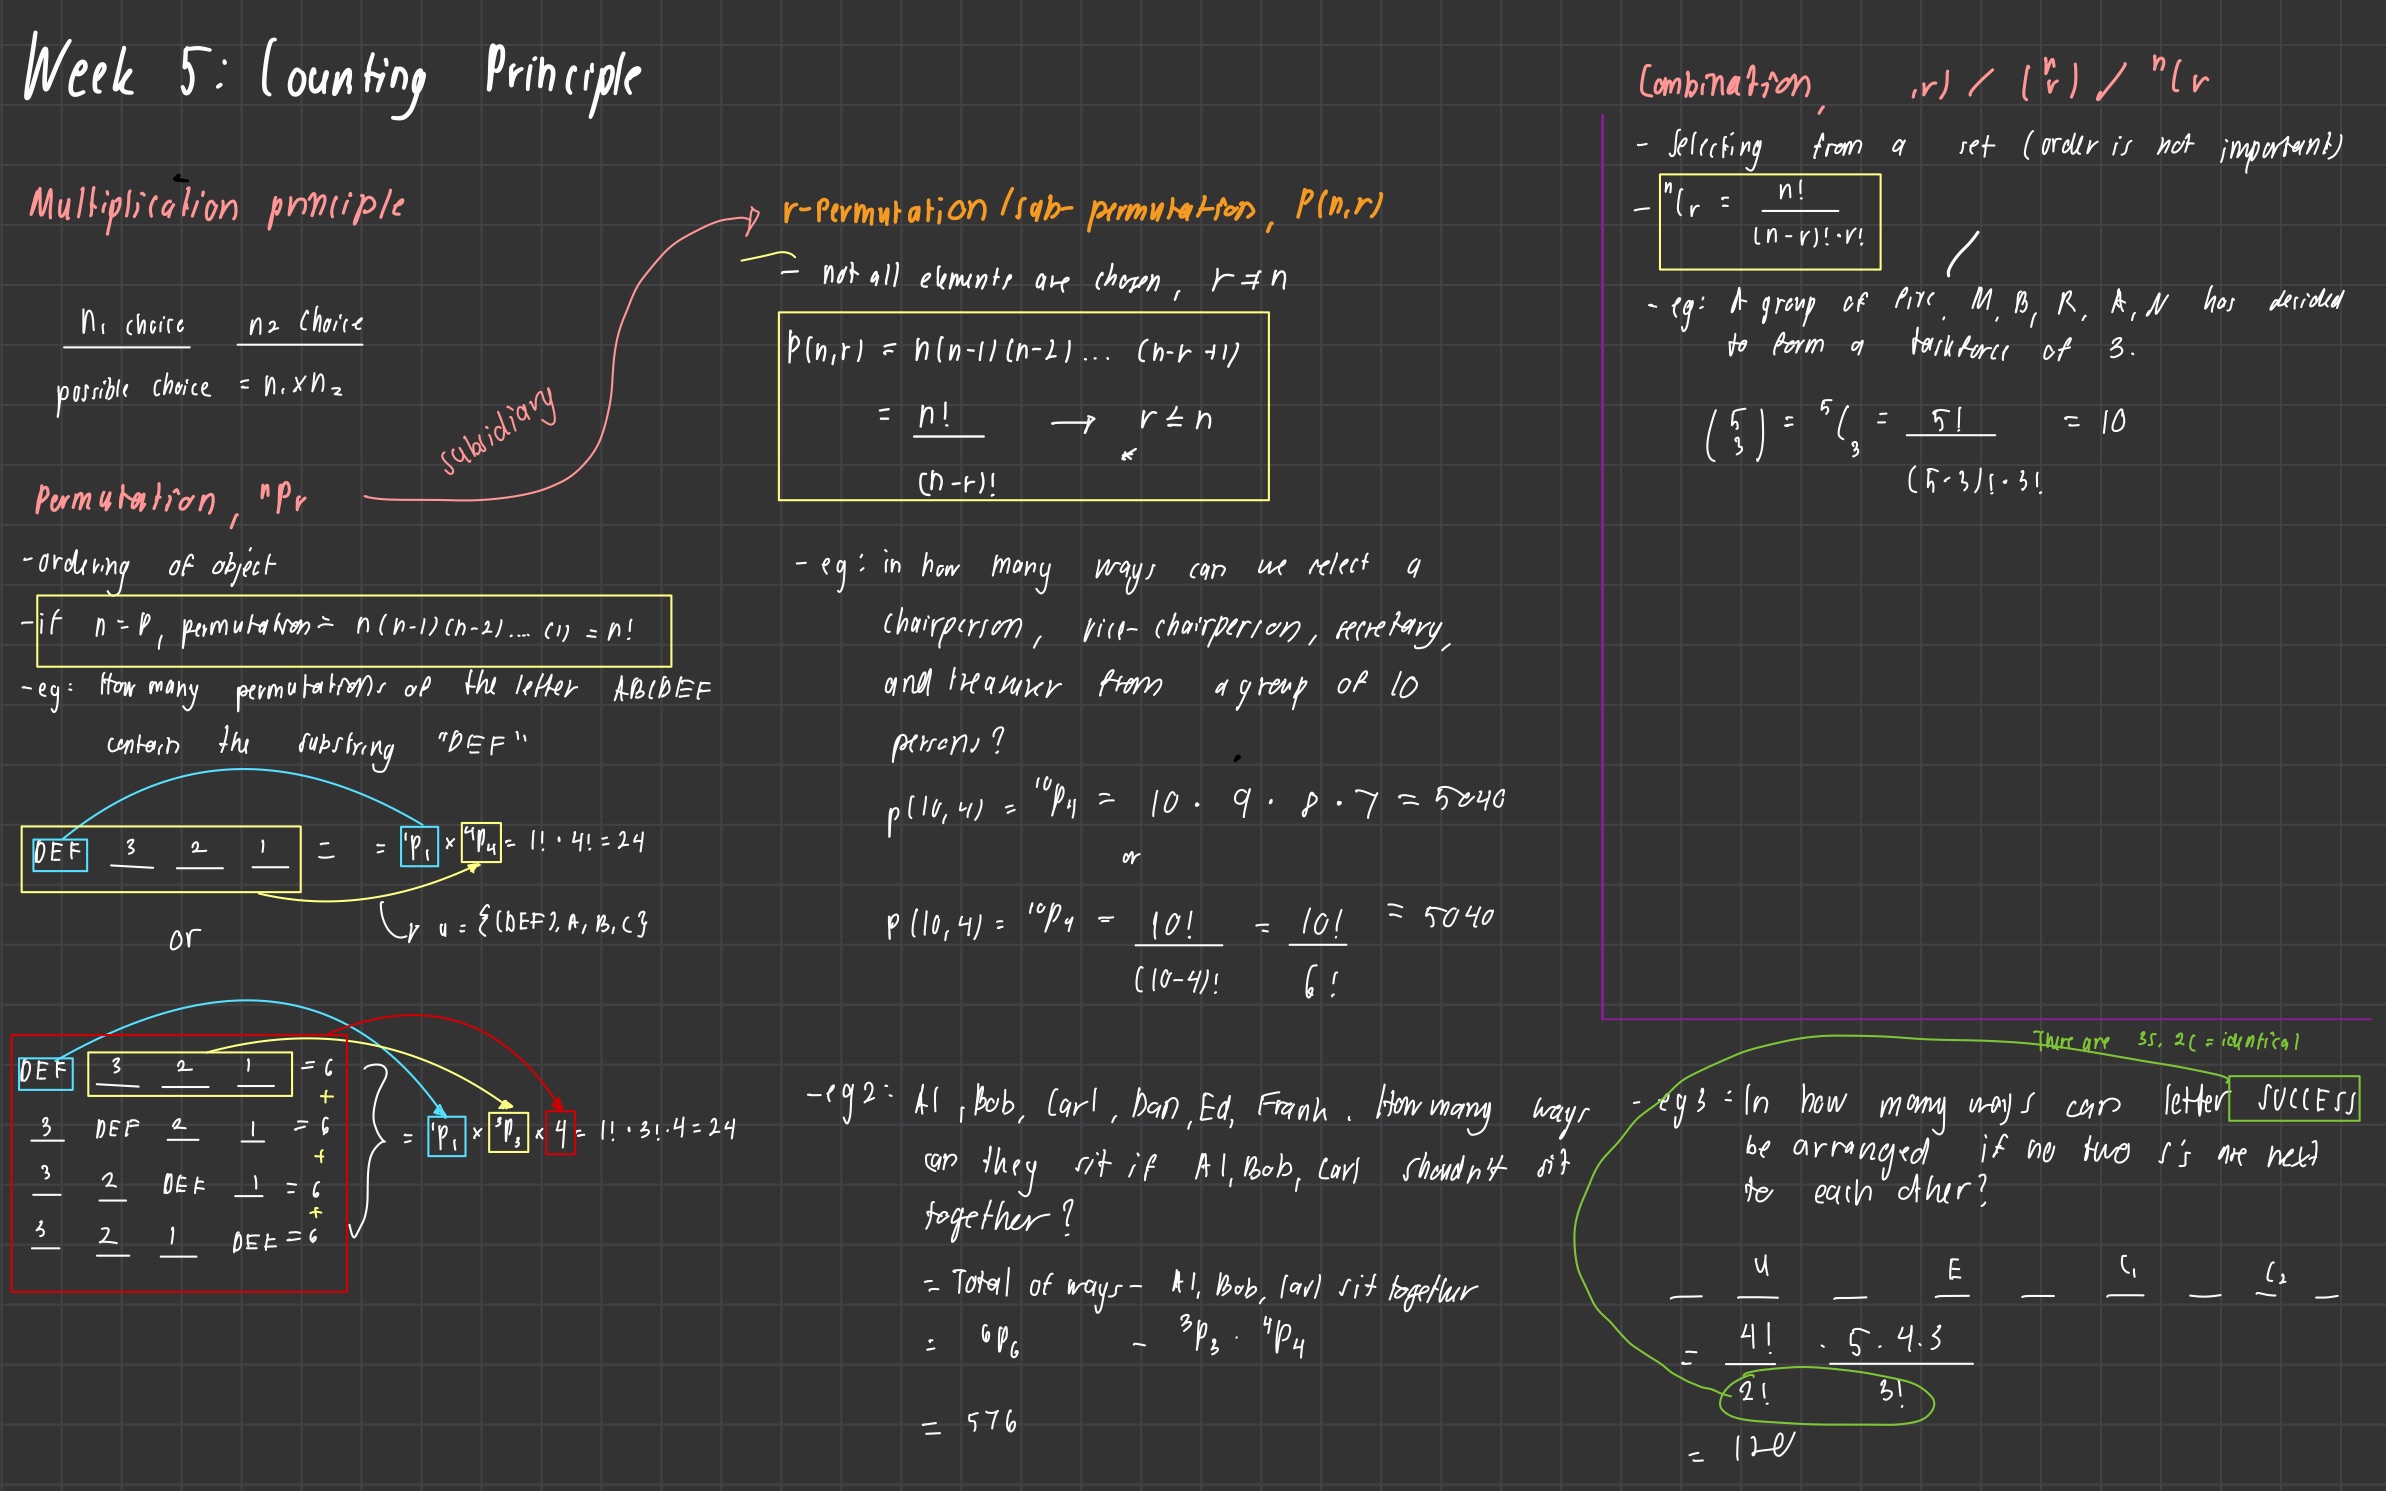 Week 5: Counting Principle
Multiplication principle
n₁ choice n₂ choice
possible choice = n₁ × n₂
Permutation, ⁿPr
subsidiary
- ordering of object
- if n = P, permutation = n(n-1)(n-2)....(1) = n!
- eg: How many permutations of the letter ABCDEF
contain the substring "DEF"
DEF 3 2 1 = = ¹P₁ × ⁴P₄ = 1! · 4! = 24
u = {(DEF), A, B, C}
or
DEF 3 2 1 = 6
+
3 DEF 2 1 = 6
+
3 2 DEF 1 = 6
+
3 2 1 DEF = 6
= ¹P₁ × ³P₃ × 4 = 1! · 3! · 4 = 24
r-Permutation / sub-permutation, P(n,r)
- not all elements are chosen, r ≠ n
P(n,r) = n(n-1)(n-2)... (n-r+1)
= n! → r ≤ n
(n-r)! *
- eg: in how many ways can we select a
chairperson, vice-chairperson, secretary,
and treasurer from a group of 10
persons?
p(10,4) = ¹⁰P₄ = 10 · 9 · 8 · 7 = 5040
or
p(10,4) = ¹⁰P₄ = 10! = 10! = 5040
(10-4)! 6!
- eg2: Al, Bob, Carl, Dan, Ed, Frank. How many ways
can they sit if Al, Bob, Carl shoudn't sit
together?
= Total of ways - Al, Bob, Carl sit together
= ⁶P₆ - ³P₃ · ⁴P₄
= 576
Combination, ,r) / (n r) / ⁿCr
- Selecting from a set (order is not important)
- ⁿCr = n!
(n-r)! · r!
- eg: A group of five, M, B, R, A, N has decided
to form a taskforce of 3.
(5 3) = ⁵C₃ = 5! = 10
(5-3)! · 3!
There are 3S, 2C = identical
- eg3 = In how many ways can letter SUCCESS
be arranged if no two s's are next
to each other?
_ U _ E _ C₁ _ C₂ _
= 4! · 5 · 4 · 3
2! 3!
= 120